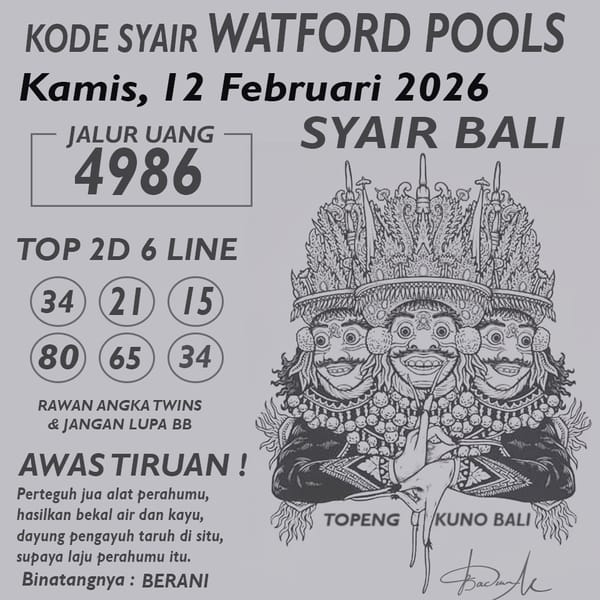 KODE SYAIR WATFORD POOLS
Kamis, 12 Februari 2026
JALUR UANG
4986
SYAIR BALI
TOP 2D 6 LINE
34 21 15
80 65 34
RAWAN ANGKA TWINS
& JANGAN LUPA BB
AWAS TIRUAN !
Perteguh jua alat perahumu,
hasilkan bekal air dan kayu,
dayung pengayuh taruh di situ,
supaya laju perahumu itu.
Binatangnya : BERANI
TOPENG KUNO BALI